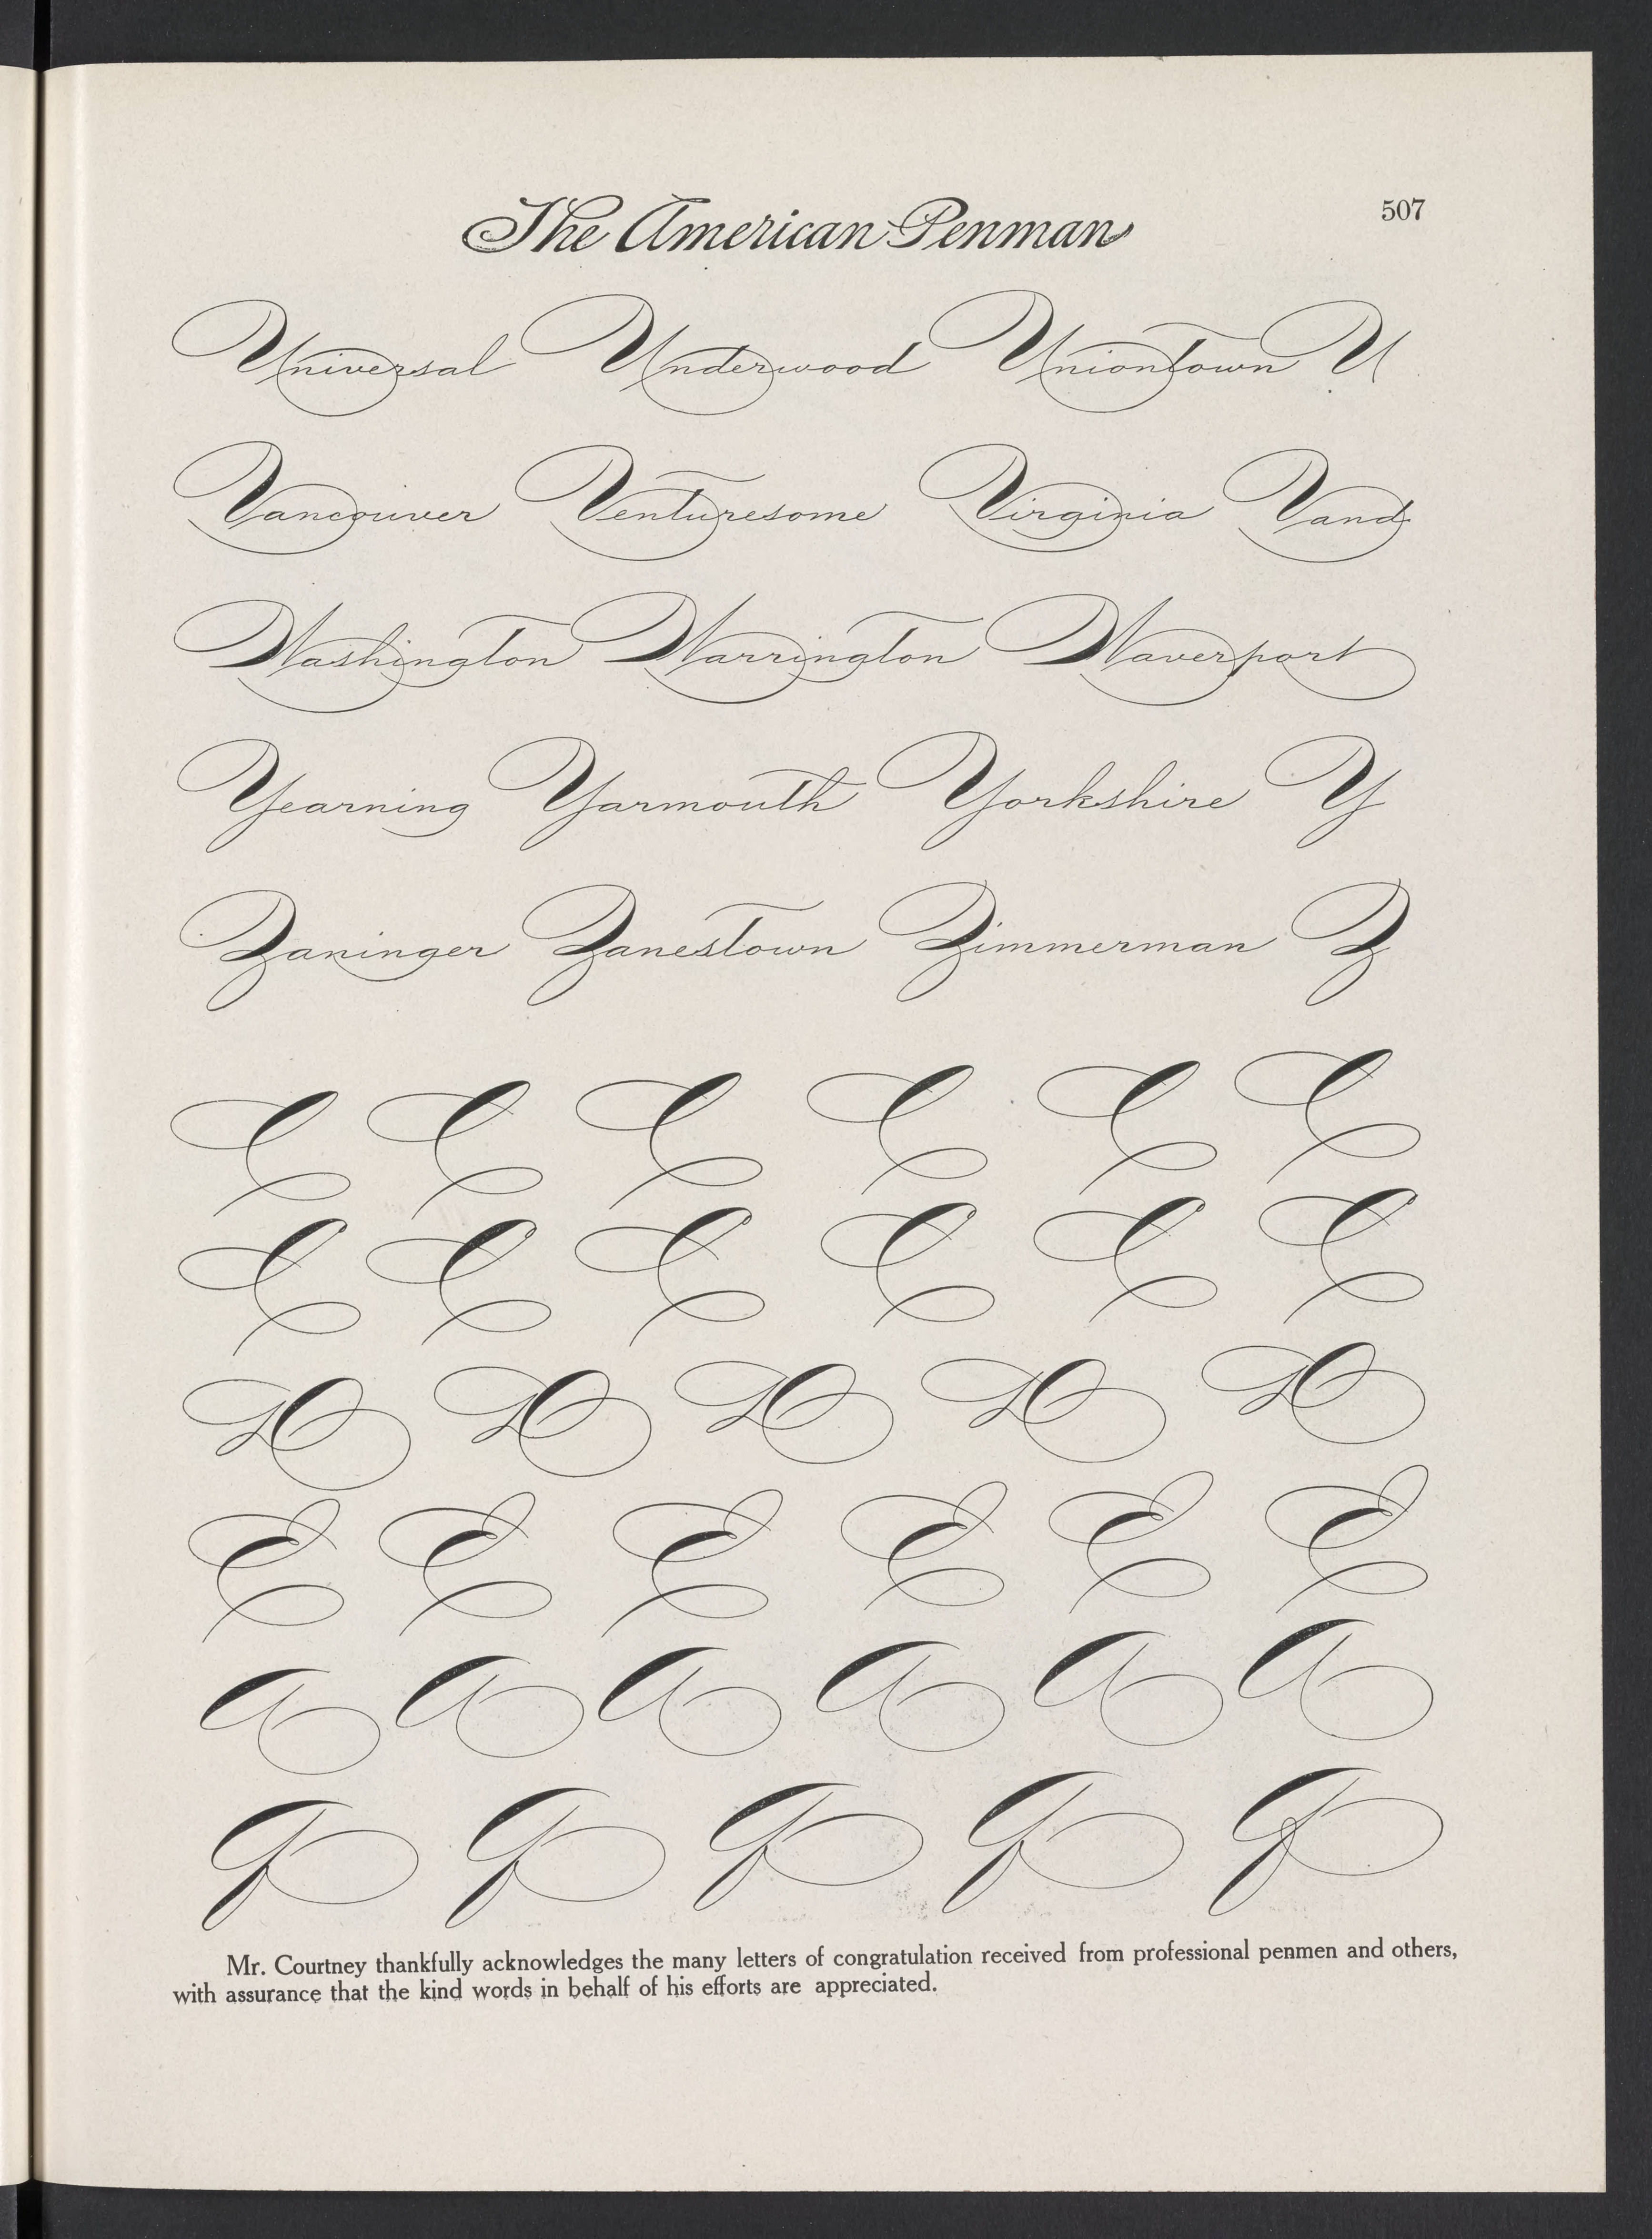 The American Penman
507
Universal Underwood Uniontown U
Vancouver Venturesome Virginia Vand
Washington Warrington Waverport
Yearning Yarmouth Yorkshire Y
Zaninger Zanestown Zimmerman Z
C C C C C C
C C C C C C
D D D D D
E E E E E E
a a a a a a
g g g g g
Mr. Courtney thankfully acknowledges the many letters of congratulation received from professional penmen and others,
with assurance that the kind words in behalf of his efforts are appreciated.